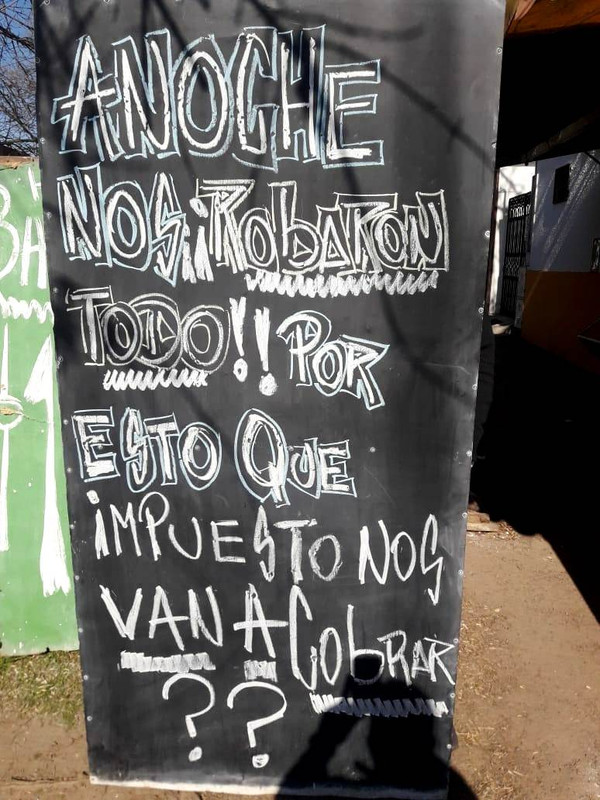 ANOCHE
NOS ¡ROBARON
TODO!! POR
ESTO QUE
IMPUESTO NOS
VAN A CobRAR
??